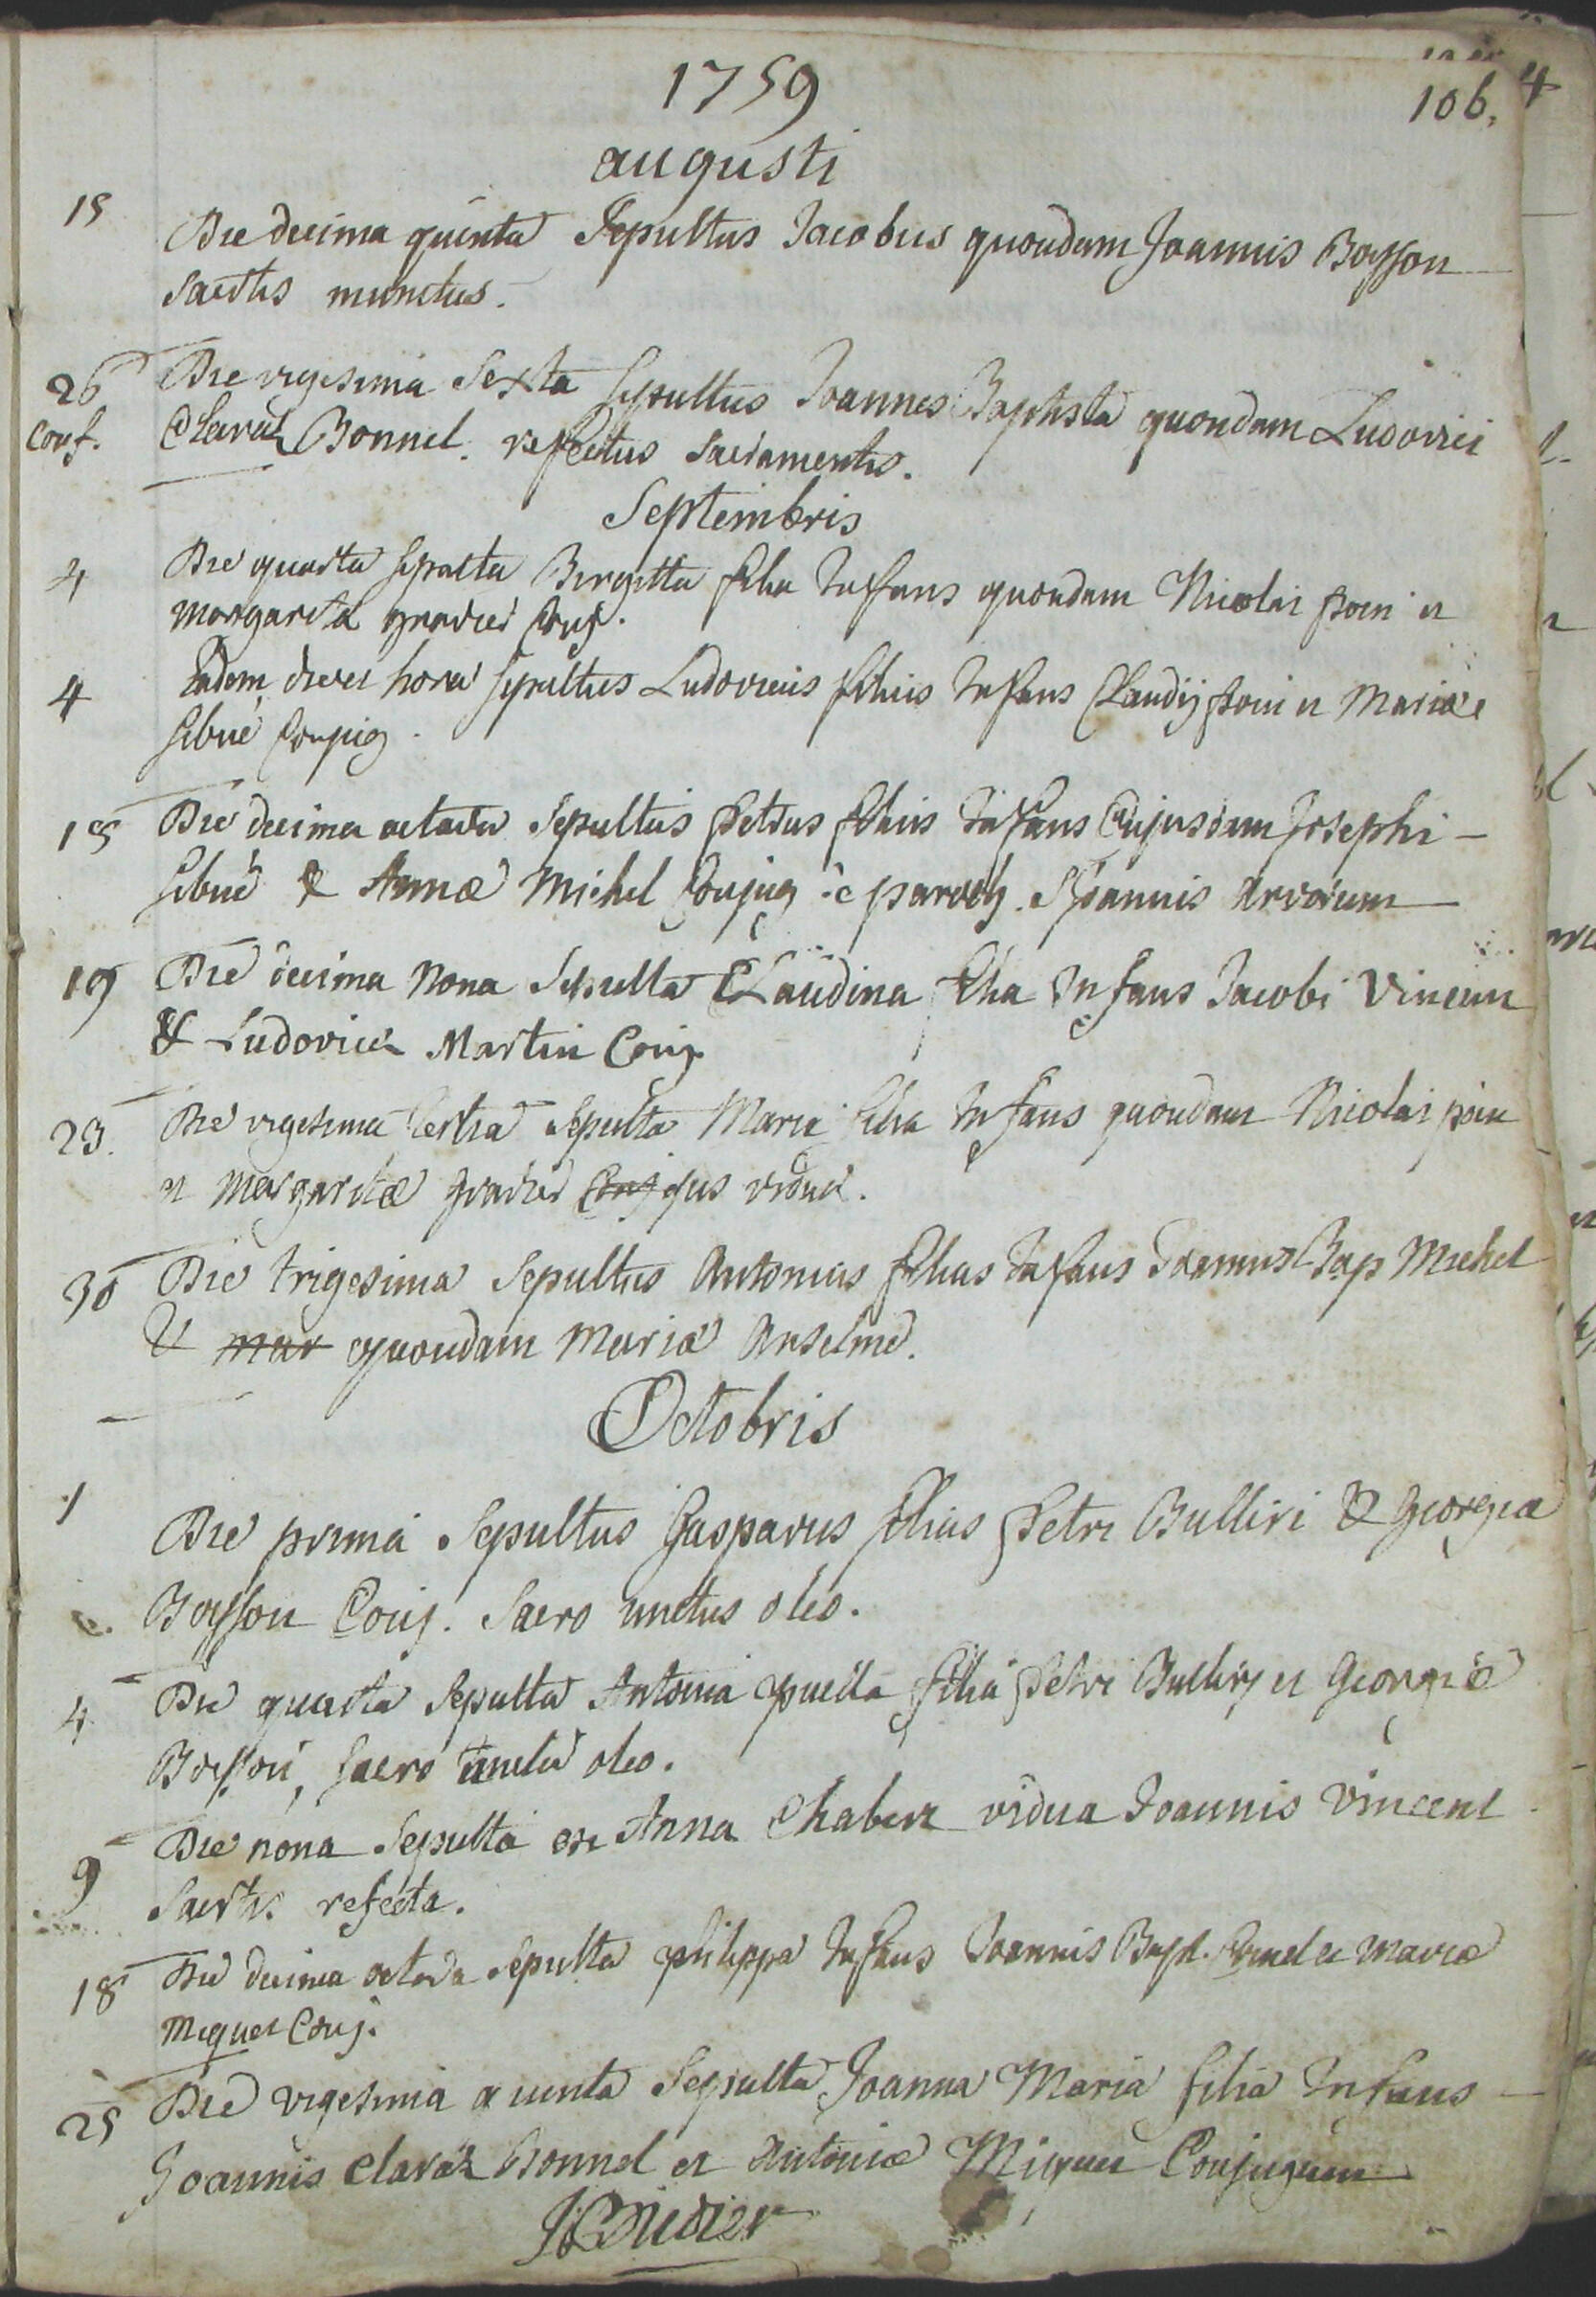 1759
106. 4
augusti
15 Die decima quinta Sepultus Jacobus quondam Joannis Boysson
Sacrtis munitus.
26 Die vigesima Sexta sepultus Joannes Baptista quondam Ludovici
Conf. Claraz Bonnel. refectus Sacramentis.
Septembris
4 Die quarta sepulta Birgitta filia Infans quondam Nicolai poin et
margarita gravier Conj.
4 Eadem die et hora sepultus Ludovicus filius Infans Claudij poin et Mariæ
sibué Conjug.
18 Die decima octava Sepultus Petrus filius Infans Cujusdam Josephi
sibué & Annæ Michel Conjug è paroch. S Joannis Arvarum
19 Die decima Nona Sepulta Claudina filia Infans Jacobi Vincent
& Ludovicæ Martin Conj.
23. Die vigesima tertia Sepulta Maria filia Infans quondam Nicolai poin
et Margaritæ gravier Conj ejus viduæ.
30 Die trigesima Sepultus Antonius filius Infans Joannis Bap Michel
& mar quondam Mariæ Anselme.
Octobris
1 Die prima Sepultus Gasparus filius Petri Bulliri & Georgiæ
Boysson Conj. Sacro unctus oleo.
4 Die quarta Sepulta Antonia puella filia Petri Bullirj et Georgiæ
Boisson, sacro uncta oleo.
9 Die nona Sepulta est Anna Chabert vidua Joannis Vincent
Sacrtis refecta.
18 Die decima octava Sepulta philippa Infans Joannis Bapt. et Mariæ
Miquet Conj.
25 Die vigesima quinta Sepulta Joanna Maria filia Infans
Joannis Claraz Bonnel et Antoniæ Miquet Conjugum